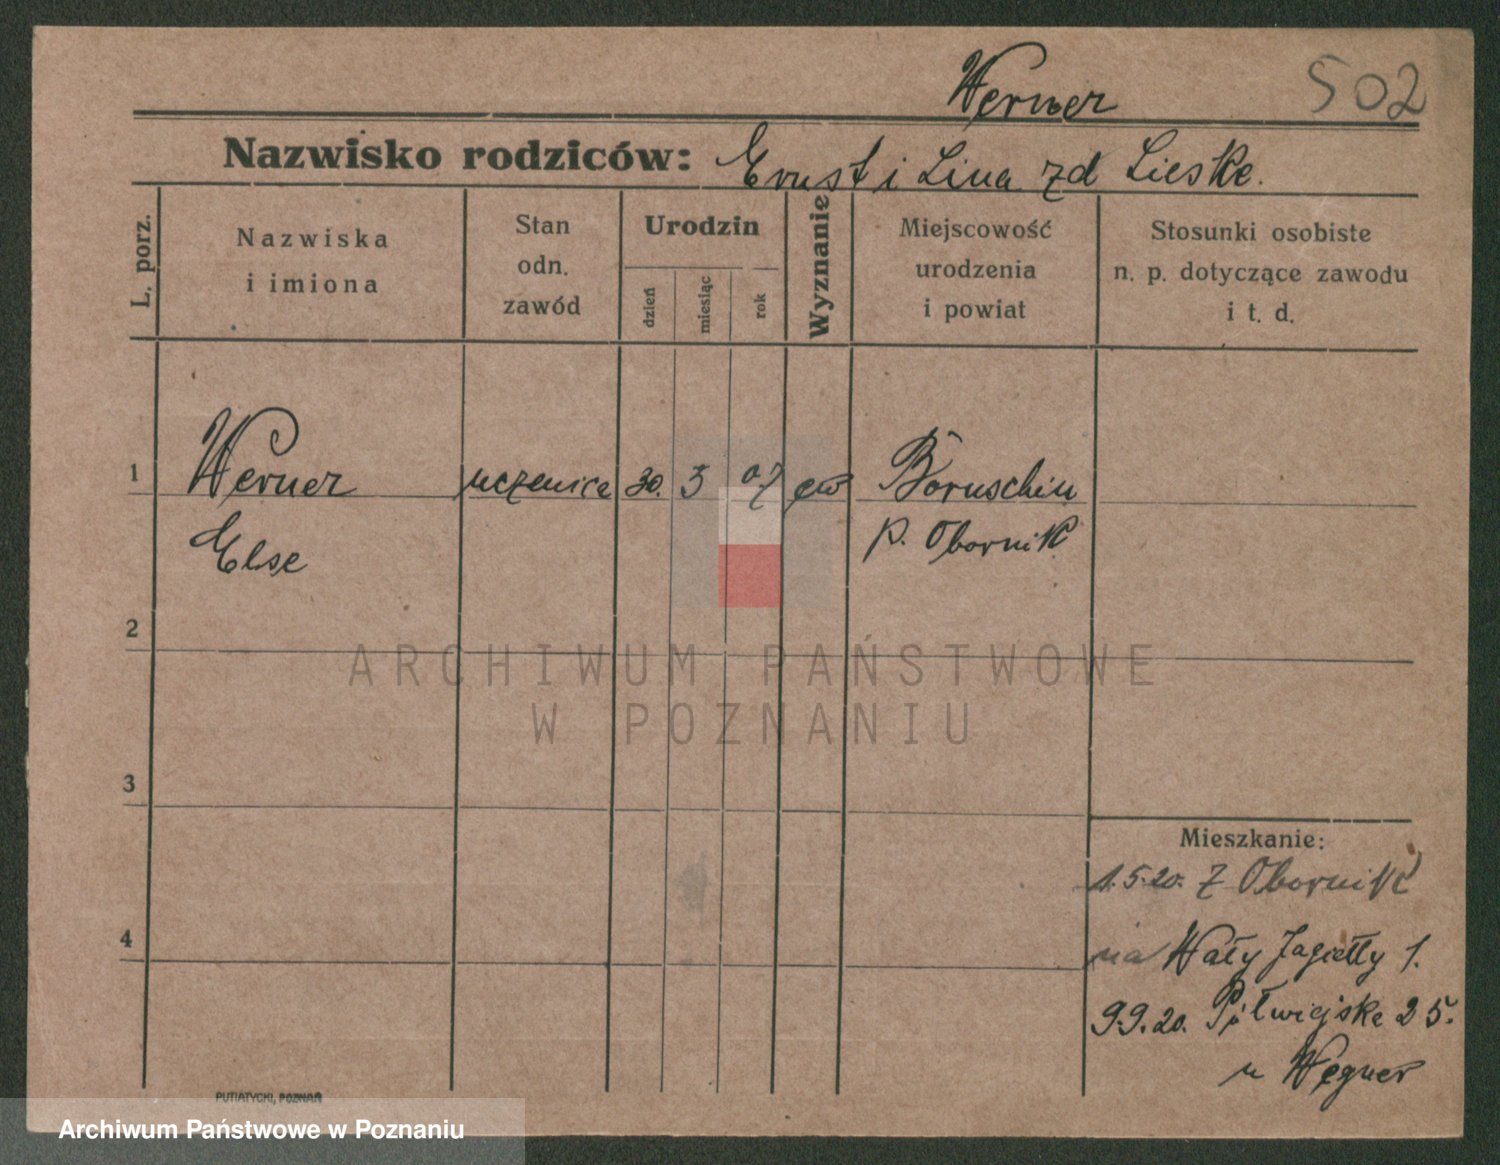 Werner
502
Nazwisko rodziców: Ernst i Lina zd Lieske.
L. porz.
Nazwiska
i imiona
Stan
odn.
zawód
Urodzin
dzień
miesiąc
rok
Wyznanie
Miejscowość
urodzenia
i powiat
Stosunki osobiste
n. p. dotyczące zawodu
i t. d.
1 Werner uczenica 30. 3 07 ew Boruschin
Else p. Obornik
2
ARCHIWUM PAŃSTWOWE
W POZNANIU
3
Mieszkanie:
1.5.20. z Obornik
4
na Wały Jagiełły 1.
9.9.20. Półwiejska 25.
u Wegner
PUTIATYCKI, POZNAŃ
Archiwum Państwowe w Poznaniu